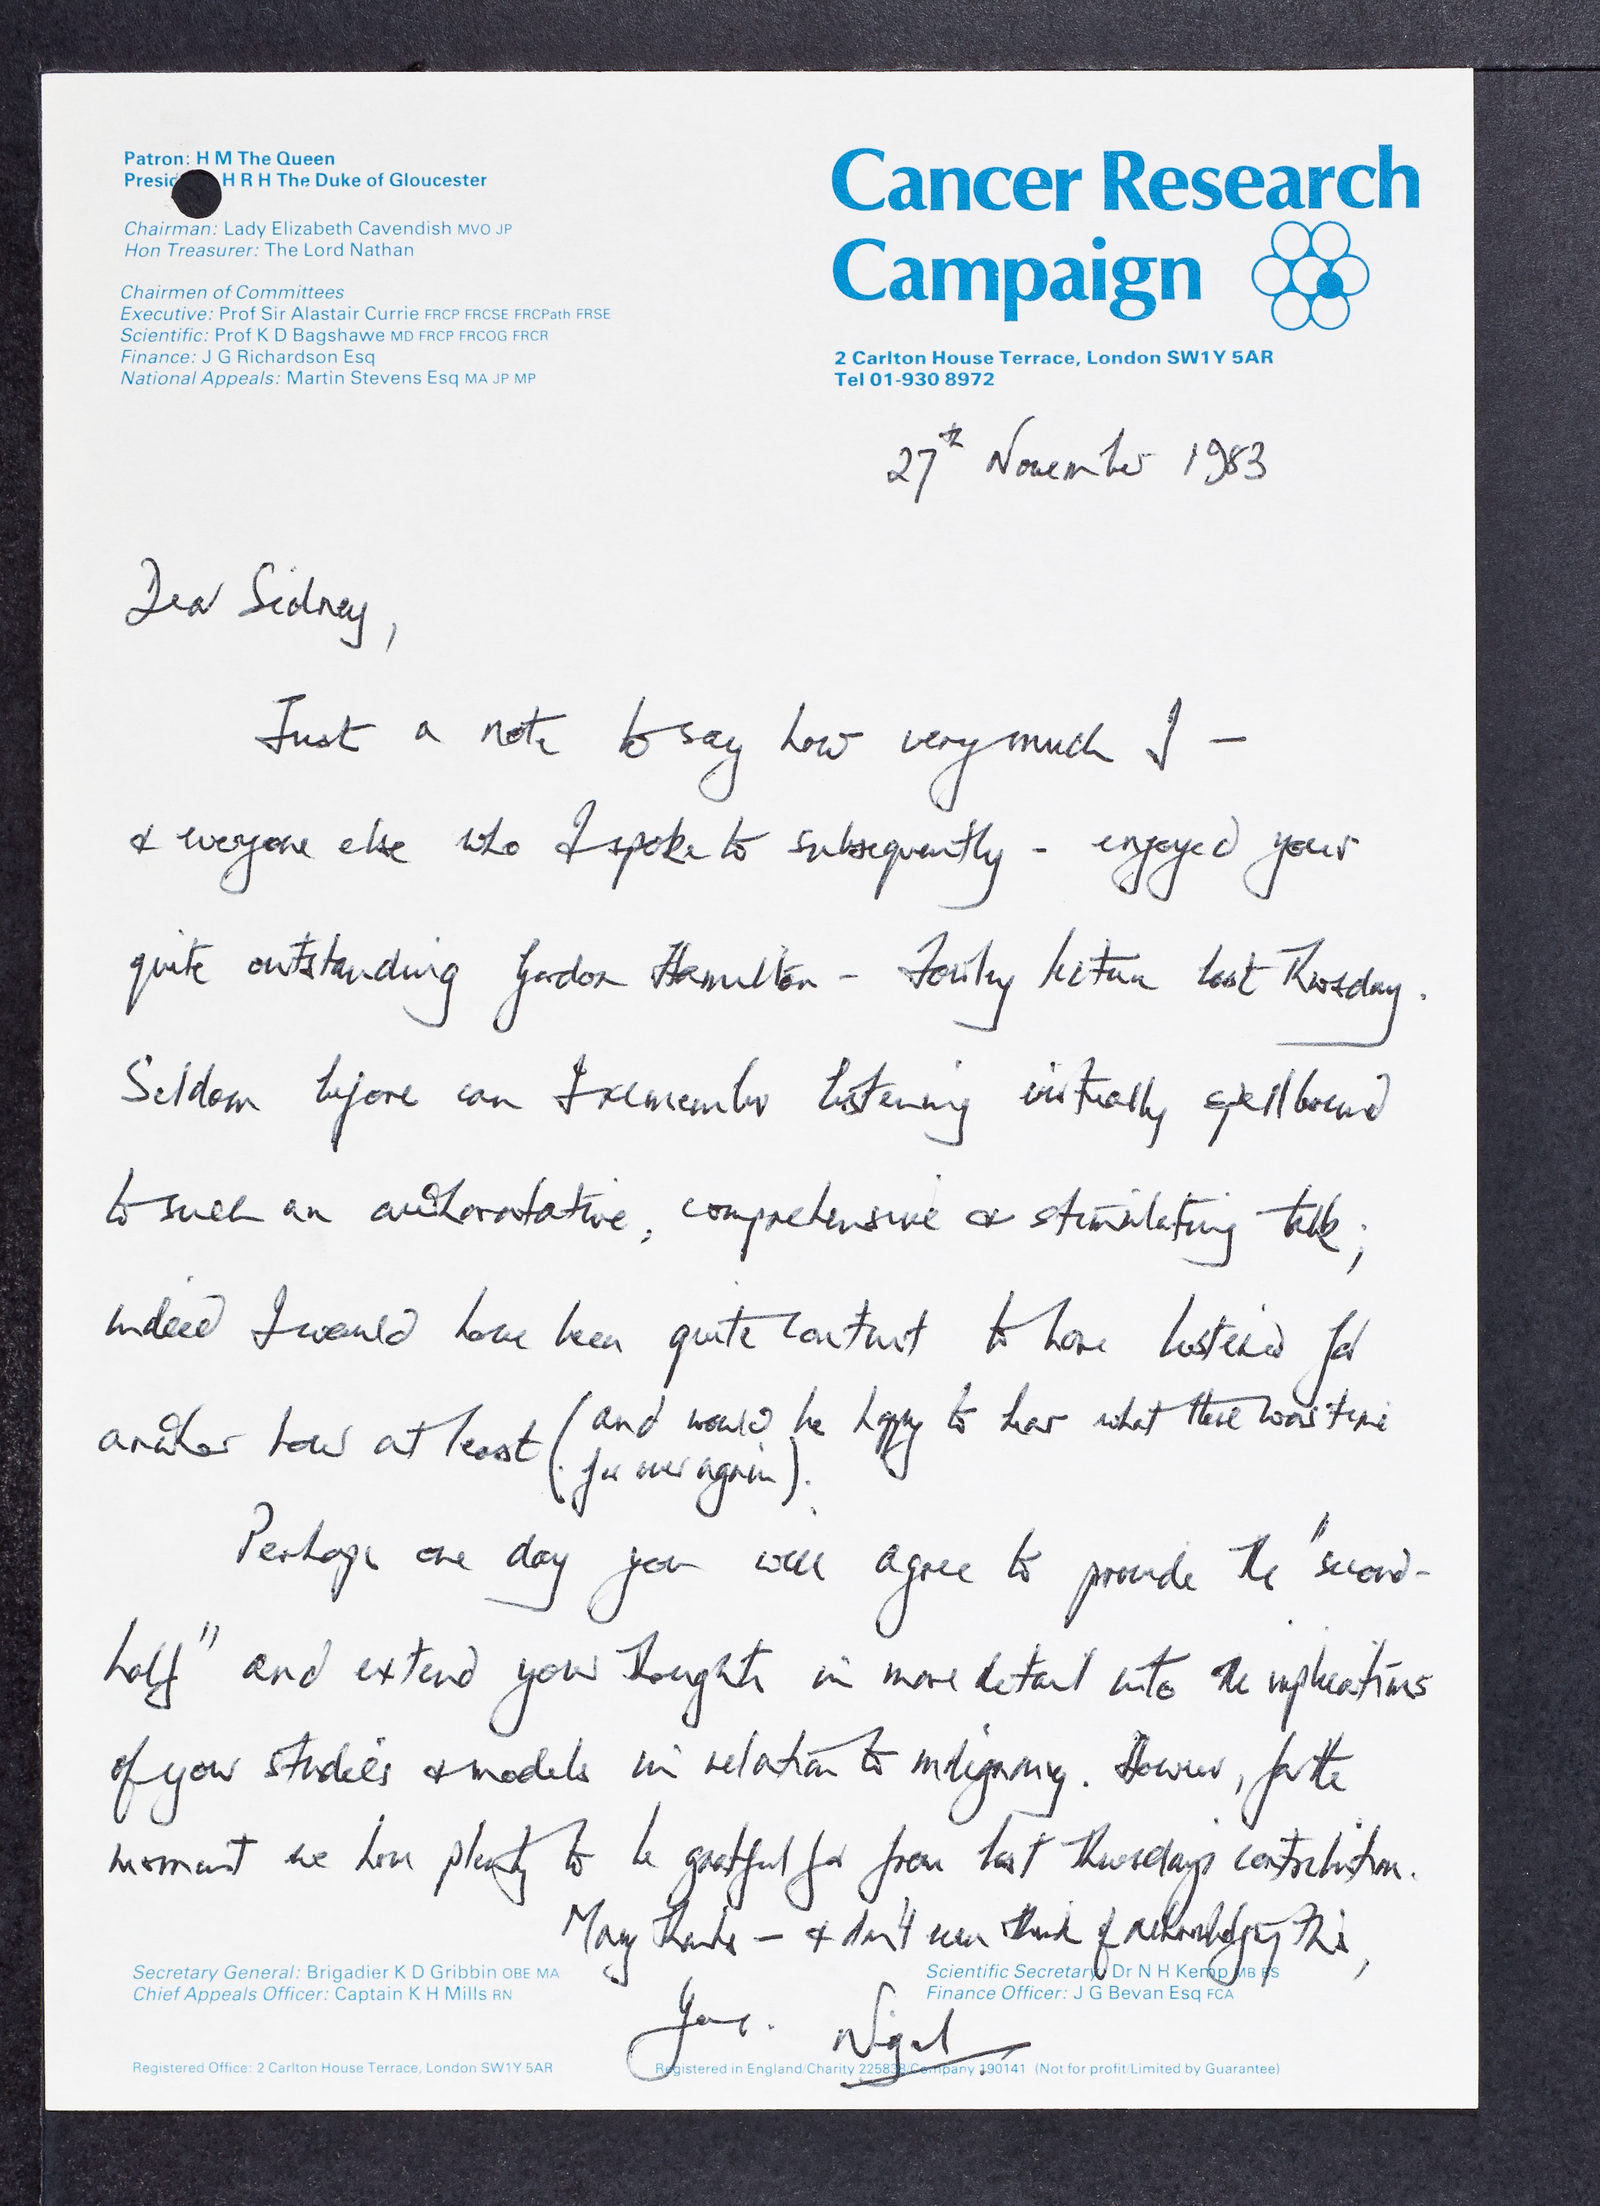 Patron: H M The Queen
Presid H R H The Duke of Gloucester
Chairman: Lady Elizabeth Cavendish MVO JP
Hon Treasurer: The Lord Nathan
Chairmen of Committees
Executive: Prof Sir Alastair Currie FRCP FRCSE FRCPath FRSE
Scientific: Prof K D Bagshawe MD FRCP FRCOG FRCR
Finance: J G Richardson Esq
National Appeals: Martin Stevens Esq MA JP MP
Cancer Research
Campaign
2 Carlton House Terrace, London SW1Y 5AR
Tel 01-930 8972
27th November 1983
Dear Sidney,
Just a note to say how very much I —
& everyone else who I spoke to subsequently - enjoyed your
quite outstanding Gordon Hamilton - Fairley lecture last Thursday.
Seldom before can I remember listening virtually spellbound
to such an authoratative, comprehensive & stimulating talk;
indeed I would have been quite content to have listened for
another hour at least (and would be happy to hear what there was time
for over again).
Perhaps one day you will agree to provide the "second-
half" and extend your thoughts in more detail into the implications
of your studies & models in relation to malignancy. However, for the
moment we have plenty to be grateful for from last Thursday's contribution.
Many thanks — & don't even think of acknowledging this,
Yours.
Nigel
Secretary General: Brigadier K D Gribbin OBE MA
Chief Appeals Officer: Captain K H Mills RN
Scientific Secretary: Dr N H Kemp MB BS
Finance Officer: J G Bevan Esq FCA
Registered Office: 2 Carlton House Terrace, London SW1Y 5AR
Registered in England/Charity 225838/Company 190141 (Not for profit/Limited by Guarantee)